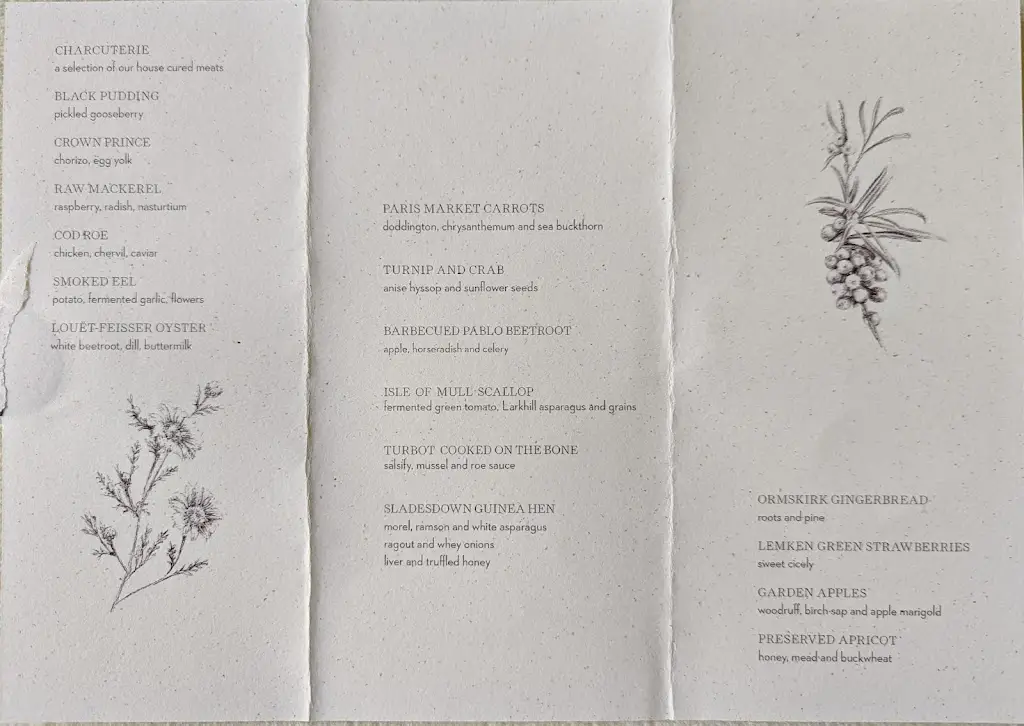 CHARCUTERIE
a selection of our house cured meats
BLACK PUDDING
pickled gooseberry
CROWN PRINCE
chorizo, egg yolk
RAW MACKEREL
raspberry, radish, nasturtium
COD ROE
chicken, chervil, caviar
SMOKED EEL
potato, fermented garlic, flowers
LOUËT-FEISSER OYSTER
white beetroot, dill, buttermilk
PARIS MARKET CARROTS
doddington, chrysanthemum and sea buckthorn
TURNIP AND CRAB
anise hyssop and sunflower seeds
BARBECUED PABLO BEETROOT
apple, horseradish and celery
ISLE OF MULL SCALLOP
fermented green tomato, Larkhill asparagus and grains
TURBOT COOKED ON THE BONE
salsify, mussel and roe sauce
SLADESDOWN GUINEA HEN
morel, ramson and white asparagus
ragout and whey onions
liver and truffled honey
ORMSKIRK GINGERBREAD
roots and pine
LEMKEN GREEN STRAWBERRIES
sweet cicely
GARDEN APPLES
woodruff, birch sap and apple marigold
PRESERVED APRICOT
honey, mead and buckwheat